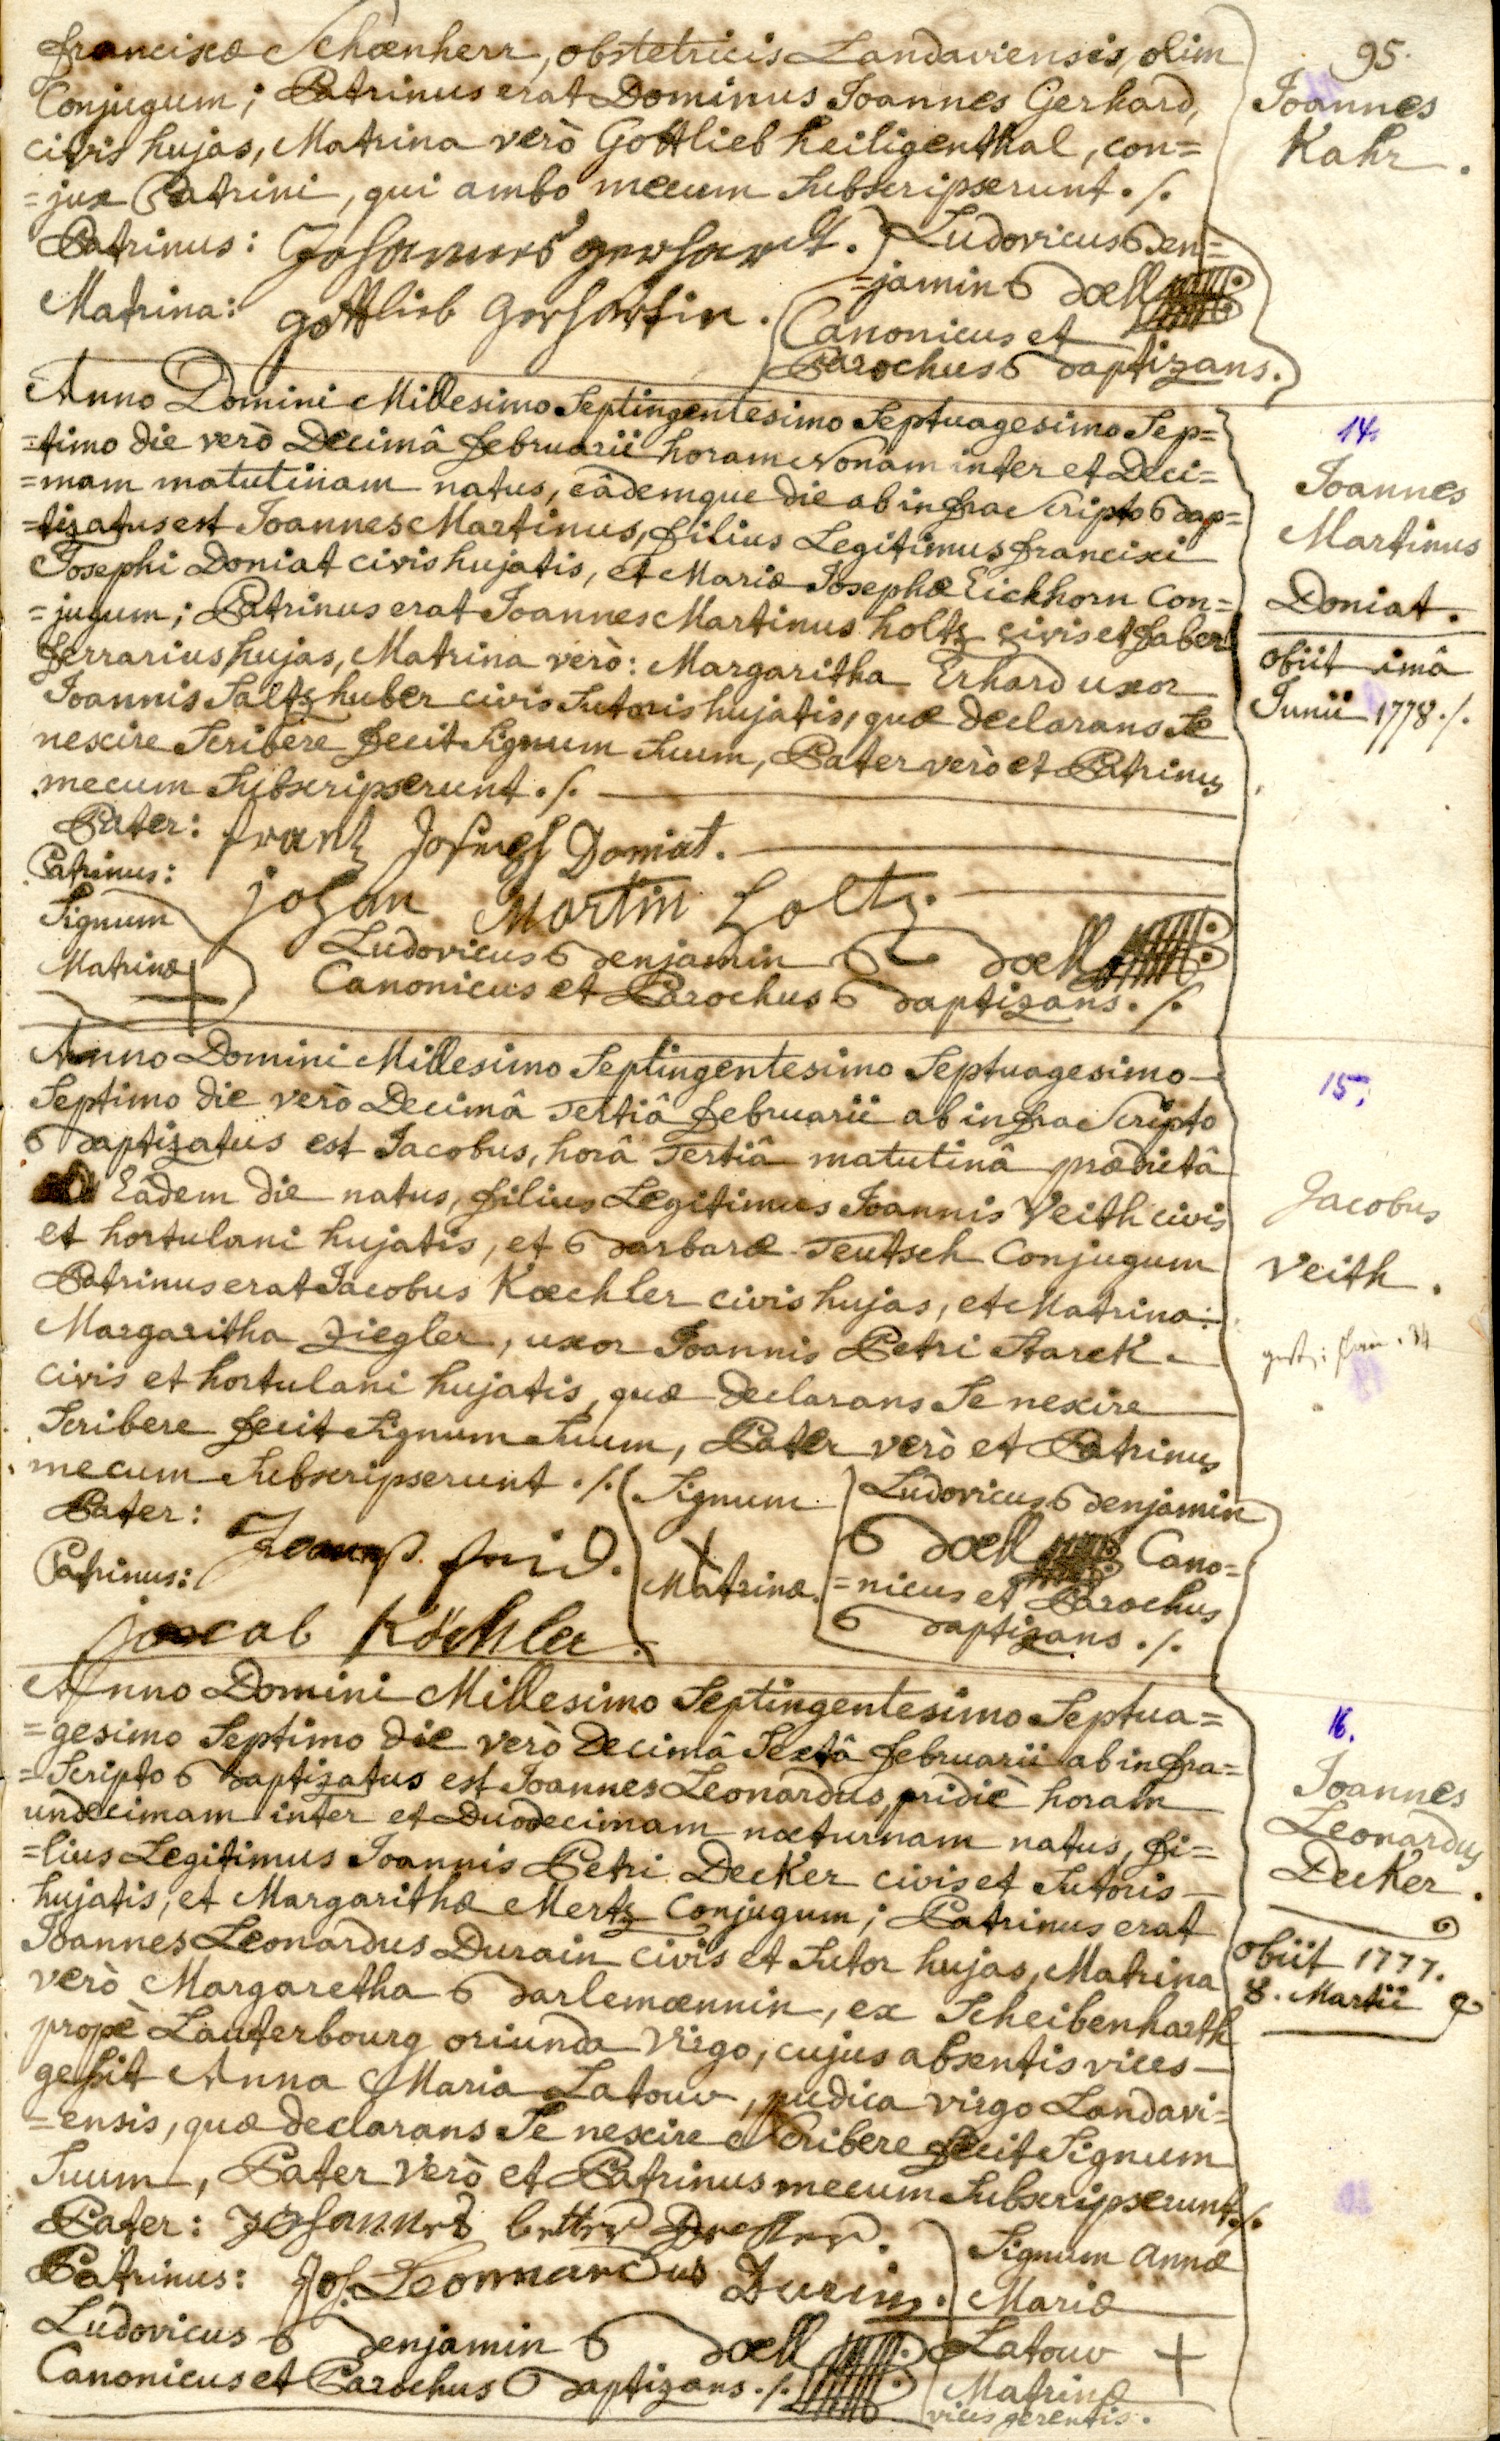 95.
Franciscæ Schœnherr, obstetricis Landaviensis, olim
Conjugum; Patrinus erat Dominus Joannes Gerhard,
civis hujas, Matrina verò Gottlieb heiligenthal, con=
=jux Patrini, qui ambo mecum Subscripserunt ./.
Patrinus: Johannes gerhardt.
Matrina: gottlieb Gerhartin.
Ludovicus Ben=
=jamin Bœll
Canonicus et
Parochus Baptizans.
Joannes
Kahr.
Anno Domini Millesimo Septingentesimo Septuagesimo Sep=
=timo die verò Decimâ februarii horam Nonam inter et Deci=
=mam matutinam natus, eâdemque die ab infra Scripto Bap=
=tizatus est Joannes Martinus, filius Legitimus francisci
Josephi Doniat civis hujatis, et Mariæ Josephæ Eickhorn Con=
=jugum; Patrinus erat Joannes Martinus holtz civis et faber
ferrarius hujas, Matrina verò: Margaritha Erhard uxor
Joannis Saltzhuber civis Sutoris hujatis, quæ declarans Se
nescire Scribere fecit Signum Suum, Pater verò et Patrinus
mecum Subscripserunt ./.
Pater: frantz Joseph Doniat.
Patrinus: johan Martin holtz.
Signum
Matrinæ +
Ludovicus Benjamin Bœll
Canonicus et Parochus Baptizans ./.
14.
Joannes
Martinus
Doniat.
obiit imâ
Junii 1778 ./.
Anno Domini Millesimo Septingentesimo Septuagesimo
Septimo die verò Decimâ Tertiâ februarii ab infra Scripto
Baptizatus est Jacobus, horâ Tertiâ matutinâ prædictâ
Eâdem die natus, filius Legitimus Joannis Veith civis
et hortulani hujatis, et Barbaræ Teutsch Conjugum
Patrinus erat Jacobus Kœchler civis hujas, et Matrina:
Margaritha Ziegler, uxor Joannis Petri Starck
civis et hortulani hujatis, quæ declarans Se nescire
Scribere fecit Signum Suum, Pater verò et Patrinus
mecum Subscripserunt ./.
Pater:
Patrinus:
jacab Köchler.
Signum
+
Matrinæ.
Ludovicus Benjamin
Bœll Cano=
=nicus et Parochus
Baptizans ./.
15.
Jacobus
Veith.
Anno Domini Millesimo Septingentesimo Septua=
=gesimo Septimo die verò Decimâ Sextâ februarii ab infra=
=Scripto Baptizatus est Joannes Leonardus, pridiè horam
undecimam inter et Duodecimam nocturnam natus, fi=
=lius Legitimus Joannis Petri Decker civis et Sutoris
hujatis, et Margarithæ Mertz Conjugum; Patrinus erat
Joannes Leonardus Durain civis et Sutor hujas, Matrina
verò Margaretha Barlemœnnin, ex Scheibenharth
propè Lauterbourg oriunda Virgo, cujus absentis vices
gessit Anna Maria Latouv, pudica virgo Landavi=
=ensis, quæ declarans Se nescire Scribere fecit Signum
Suum, Pater Verò et Patrinus mecum Subscripserunt ./.
Pater: Johannes better Decker.
Patrinus: Joh. Leonnardus Durin.
Ludovicus Benjamin Bœll
Canonicus et Parochus Baptizans ./.
Signum Annæ
Mariæ
Latouv +
Matrinæ
vices gerentis.
16.
Joannes
Leonardus
Decker.
obiit 1777.
8. Martii